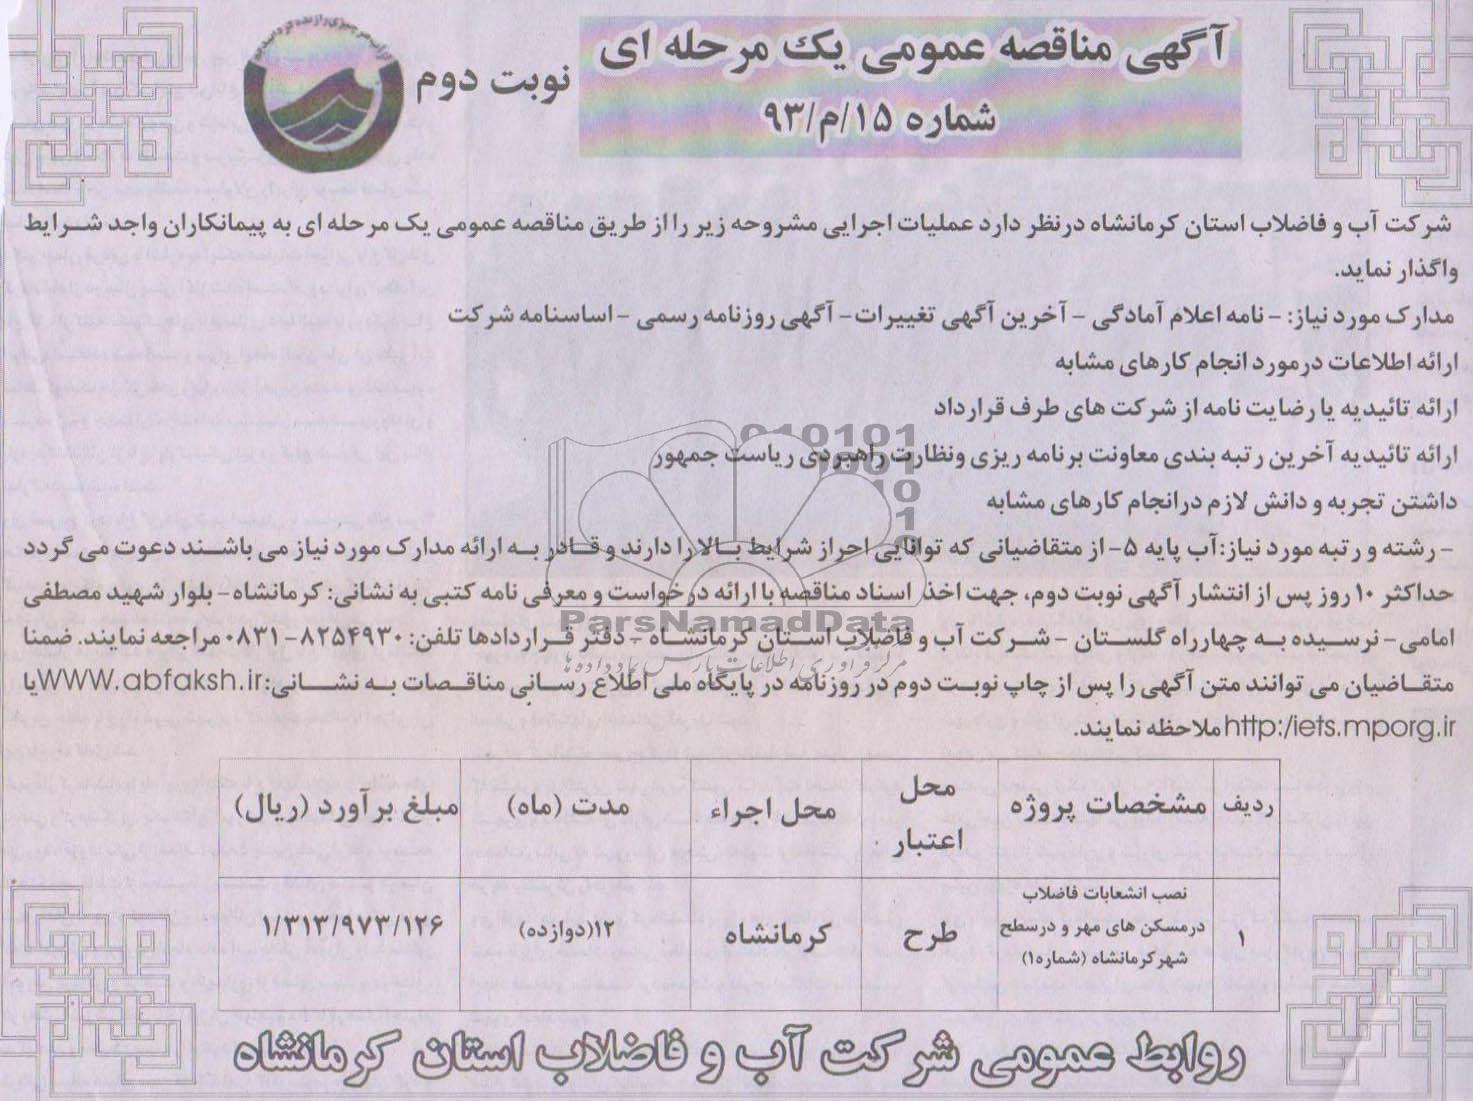 آگهی مناقصه عمومی یک مرحله ای
شماره ۱۵/م/۹۳
نوبت دوم
شرکت آب و فاضلاب استان کرمانشاه درنظر دارد عملیات اجرایی مشروحه زیر را از طریق مناقصه عمومی یک مرحله ای به پیمانکاران واجد شرایط
واگذار نماید.
مدارک مورد نیاز: - نامه اعلام آمادگی - آخرین آگهی تغییرات - آگهی روزنامه رسمی - اساسنامه شرکت
ارائه اطلاعات درمورد انجام کارهای مشابه
ارائه تائیدیه یا رضایت نامه از شرکت های طرف قرارداد
ارائه تائیدیه آخرین رتبه بندی معاونت برنامه ریزی ونظارت راهبردی ریاست جمهور
داشتن تجربه و دانش لازم درانجام کارهای مشابه
- رشته و رتبه مورد نیاز:آب پایه ۵- از متقاضیانی که توانایی احراز شرایط بالا را دارند و قادر به ارائه مدارک مورد نیاز می باشند دعوت می گردد
حداکثر ۱۰ روز پس از انتشار آگهی نوبت دوم، جهت اخذ اسناد مناقصه با ارائه درخواست و معرفی نامه کتبی به نشانی: کرمانشاه- بلوار شهید مصطفی
امامی- نرسیده به چهارراه گلستان - شرکت آب و فاضلاب استان کرمانشاه - دفتر قراردادها تلفن: ۸۲۵۴۹۳۰-۰۸۳۱ مراجعه نمایند. ضمنا
متقاضیان می توانند متن آگهی را پس از چاپ نوبت دوم در روزنامه در پایگاه ملی اطلاع رسانی مناقصات به نشانی:WWW.abfaksh.ir یا
http:/iets.mporg.ir ملاحظه نمایند.
ردیف مشخصات پروژه محل اعتبار محل اجراء مدت (ماه) مبلغ برآورد (ریال)
۱ نصب انشعابات فاضلاب
درمسکن های مهر و درسطح
شهرکرمانشاه (شماره۱)
طرح کرمانشاه ۱۲(دوازده) ۱/۳۱۳/۹۷۳/۱۲۶
روابط عمومی شرکت آب و فاضلاب استان کرمانشاه
010101
ParsNamadData
مرکز فرآوری اطلاعات پارس نماد داده ها